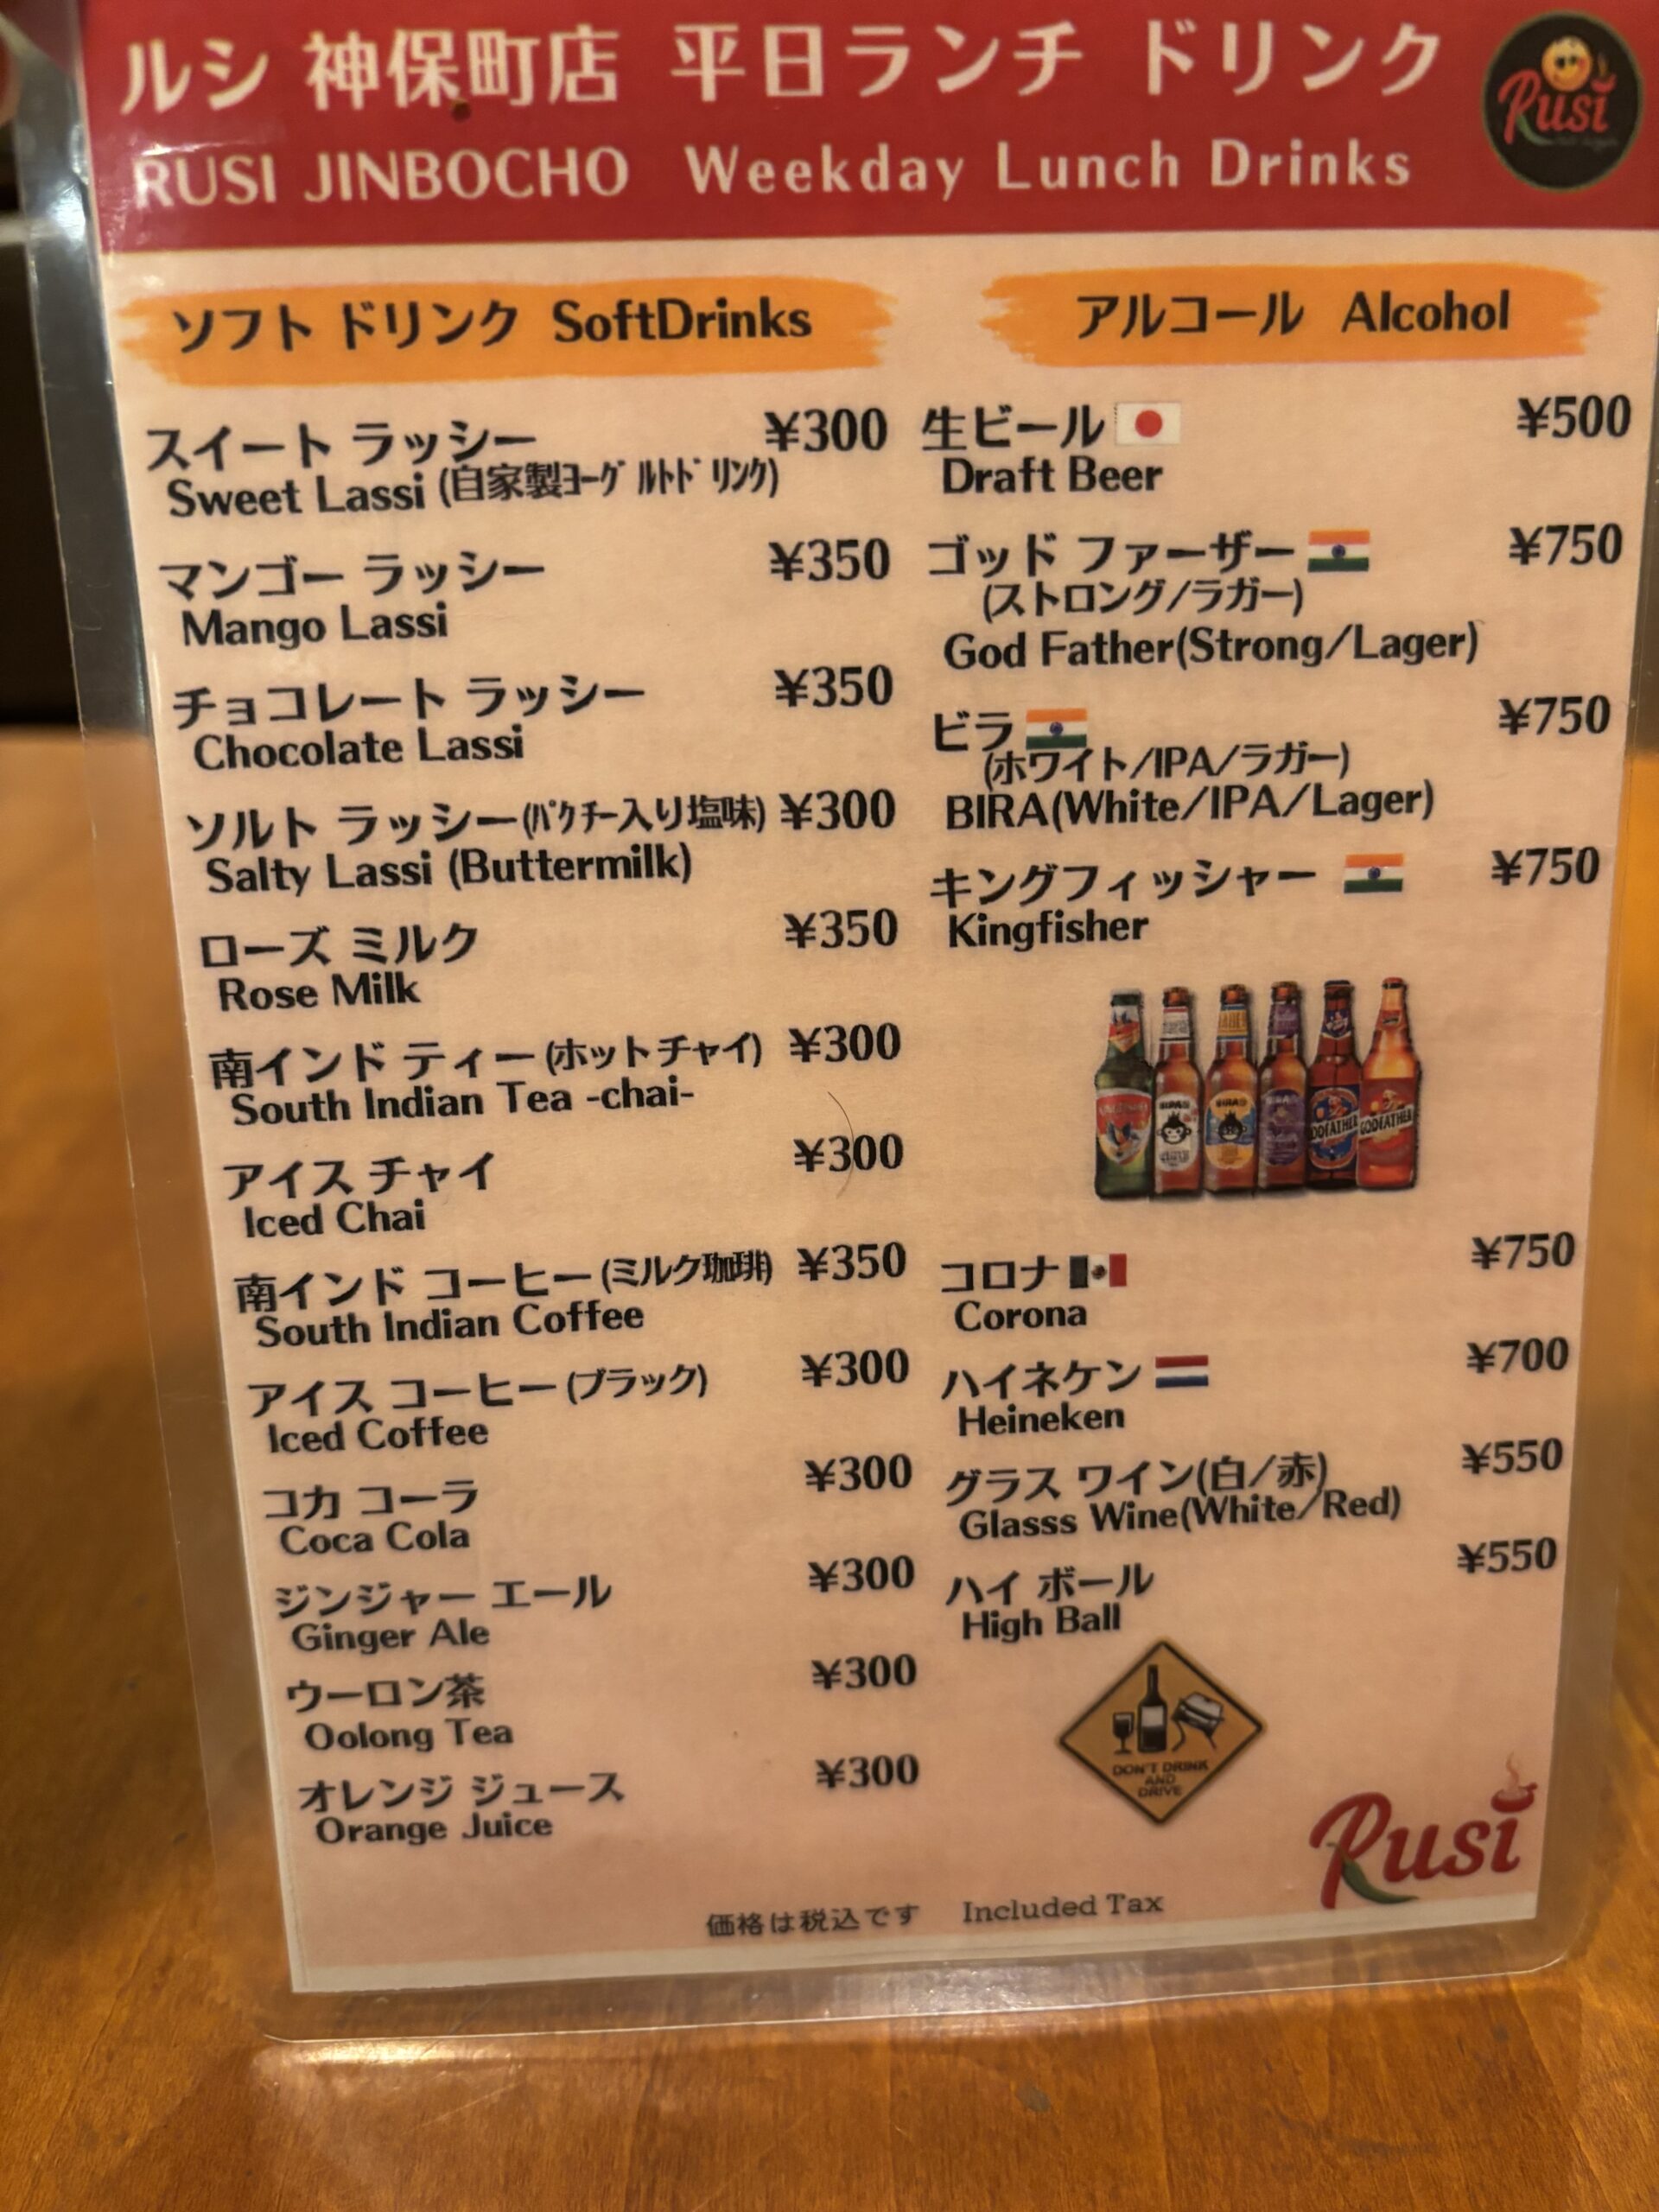 ルシ 神保町店 平日ランチ ドリンク
RUSI JINBOCHO Weekday Lunch Drinks
Rusi
ソフト ドリンク SoftDrinks
スイート ラッシー ¥300
Sweet Lassi (自家製ﾖｰｸﾞﾙﾄﾄﾞﾘﾝｸ)
マンゴー ラッシー ¥350
Mango Lassi
チョコレート ラッシー ¥350
Chocolate Lassi
ソルト ラッシー(ﾊﾟｸﾁｰ入り塩味) ¥300
Salty Lassi (Buttermilk)
ローズ ミルク ¥350
Rose Milk
南インド ティー(ホットチャイ) ¥300
South Indian Tea -chai-
アイス チャイ ¥300
Iced Chai
南インド コーヒー(ミルク珈琲) ¥350
South Indian Coffee
アイス コーヒー(ブラック) ¥300
Iced Coffee
コカ コーラ ¥300
Coca Cola
ジンジャー エール ¥300
Ginger Ale
ウーロン茶 ¥300
Oolong Tea
オレンジ ジュース ¥300
Orange Juice
アルコール Alcohol
生ビール ¥500
Draft Beer
ゴッド ファーザー ¥750
(ストロング/ラガー)
God Father(Strong/Lager)
ビラ ¥750
(ホワイト/IPA/ラガー)
BIRA(White/IPA/Lager)
キングフィッシャー ¥750
Kingfisher
GODFATHER
コロナ ¥750
Corona
ハイネケン ¥700
Heineken
グラス ワイン(白/赤) ¥550
Glasss Wine(White/Red)
ハイ ボール ¥550
High Ball
DON'T DRINK
AND
DRIVE
Rusi
価格は税込です Included Tax